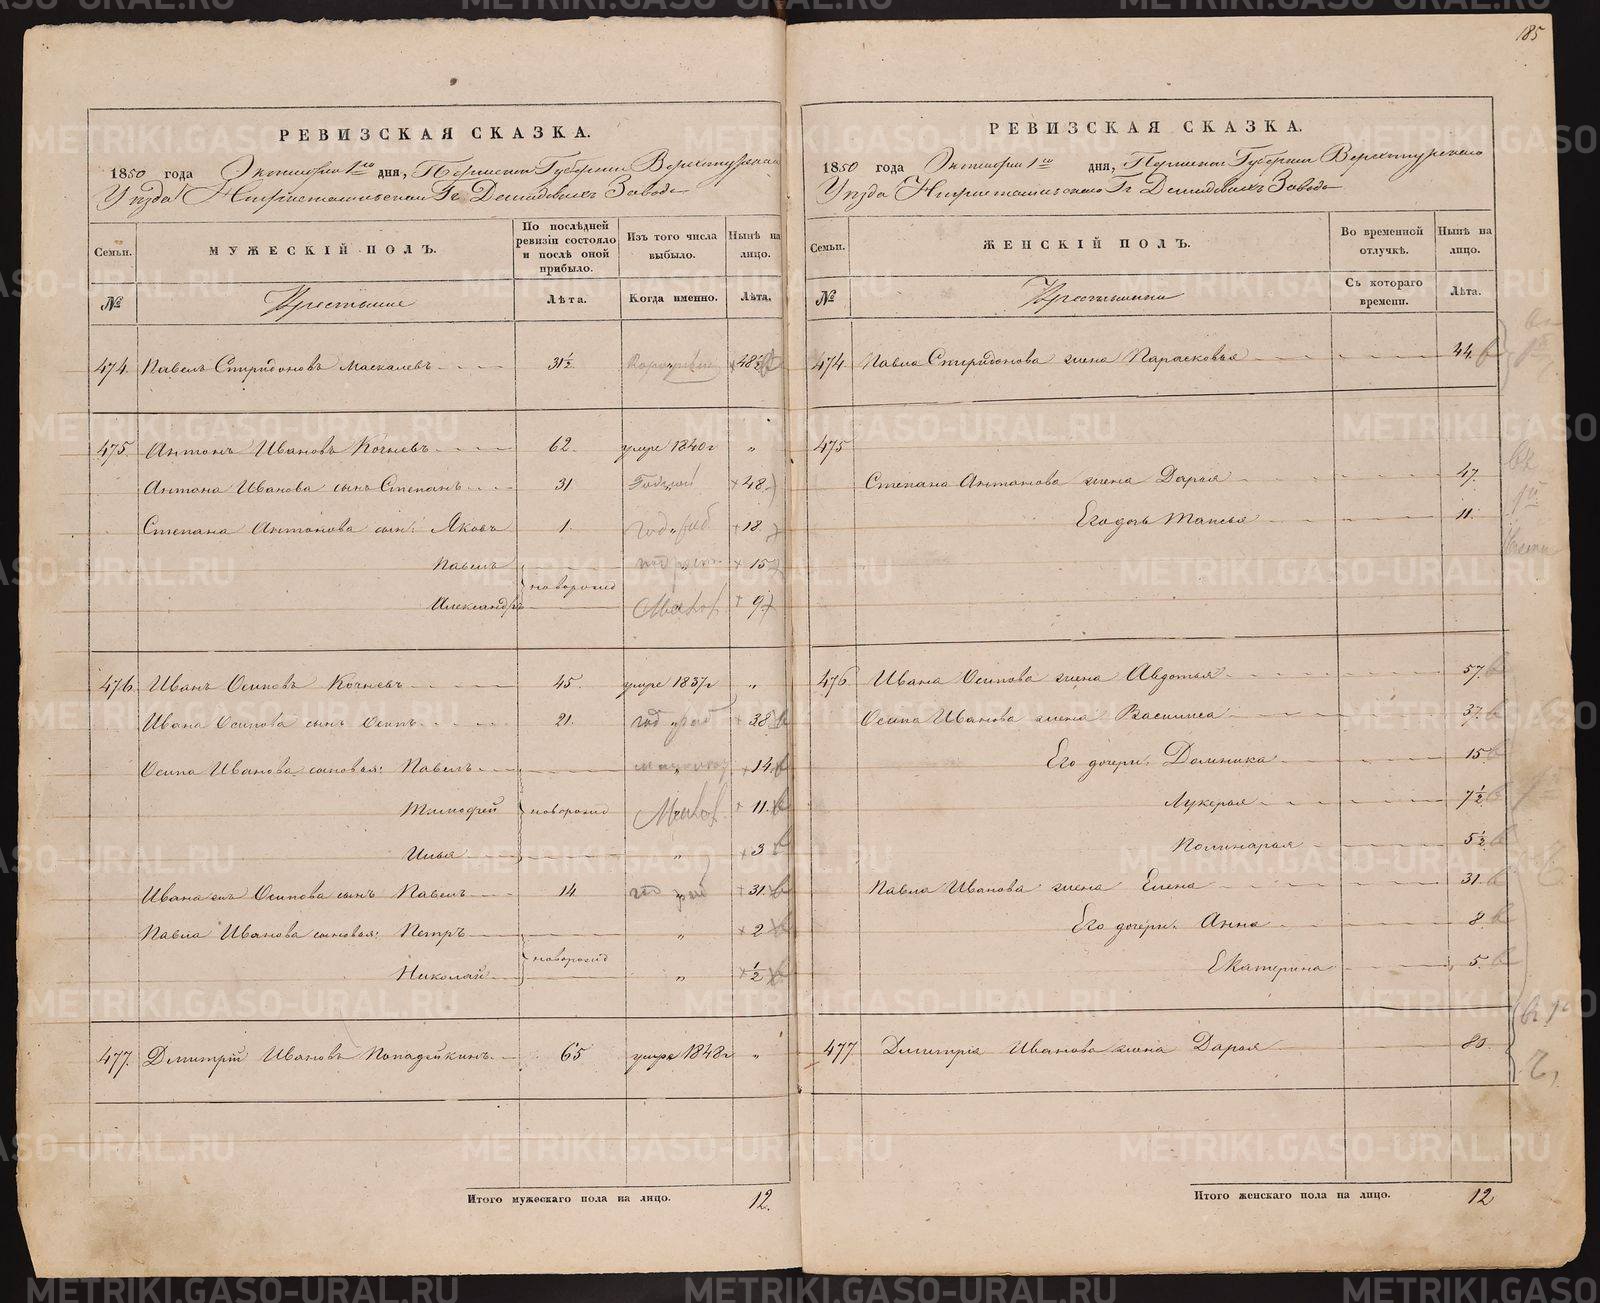 185
РЕВИЗСКАЯ СКАЗКА.
1850 года Октября 1го дня, Пермской Губернии Верхотурскаго
Уѣзда Нижнетагильскаго Гг Демидовыхъ Завода
Семьи.
МУЖЕСКІЙ ПОЛЪ.
По послѣдней ревизіи состояло и послѣ оной прибыло.
Изъ того числа выбыло.
Нынѣ на лицо.
№
Крестьяне
Лѣта.
Когда именно.
Лѣта.
474. Павелъ Спиридоновъ Маскалевъ 31½ " 48½
475. Антонъ Ивановъ Кочневъ 62. умре 1840г "
Антона Иванова сынъ Степанъ 31 " 48.
Степана Антонова сын: Яковъ 1. " 18.
Павелъ " 15
новорожд
Александръ 9.
476. Иванъ Осиповъ Кочневъ 45. умре 1837г "
Ивана Осипова сынъ Осипъ 21. " 38.
Осипа Иванова сыновья: Павелъ " 14.
Тимофей новорожд 11.
Илья " 3
Ивана Осипова сынъ Павелъ 14 " 31.
Павла Иванова сыновья: Петръ " 2
новорожд
Николай " ½
477. Дмитрій Ивановъ Попадейкинъ 65 умре 1848г "
Итого мужескаго пола на лицо. 12.
РЕВИЗСКАЯ СКАЗКА.
1850 года Октября 1го дня, Пермской Губерніи Верхотурскаго
Уѣзда Нижнетагильскаго Гг Демидовыхъ Завода
Семьи.
ЖЕНСКІЙ ПОЛЪ.
Во временной отлучкѣ.
Нынѣ на лицо.
№
Крестьянки
Съ котораго времени.
Лѣта.
474. Павла Спиридонова жена Парасковья 44.
475
Степана Антонова жена Дарья 47.
Его дочь Таисья 11.
476. Ивана Осипова жена Авдотья 57.
Осипа Иванова жена Василиса 37.
Его дочери. Домника 15
Лукерья 7½
Полинарья 5½
Павла Иванова жена Елена 31.
Его дочери. Анна 8.
Екатерина 5.
477. Дмитрія Иванова жена Дарья 80.
Итого женскаго пола на лицо. 12
METRIKI.GASO-URAL.RU